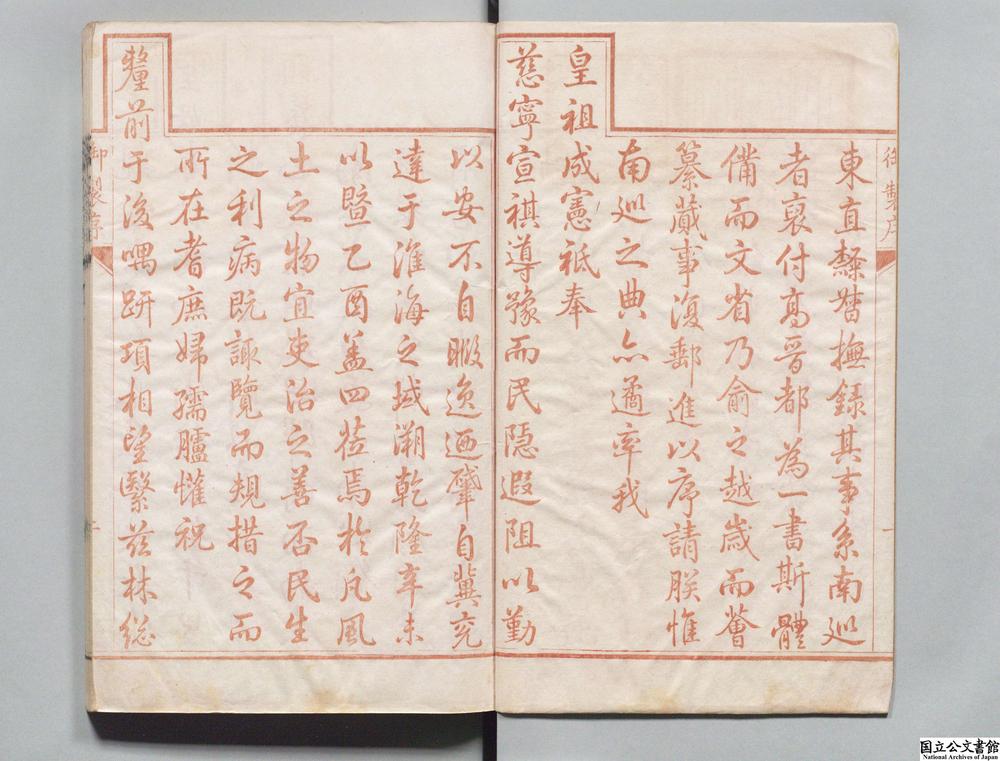 御製序
一
東直隸督撫錄其事系南巡
者裒付高晉都為一書斯體
備而文省乃俞之越歲而薈
纂蕆事復郵進以序請朕惟
南巡之典亦遹率我
皇祖成憲祗奉
慈寧宣祺導豫而民隱遐阻以勤
以安不自暇逸迺肇自冀兗
達于淮海之域溯乾隆辛未
以暨乙酉葢四莅焉於凡風
土之物宜吏治之善否民生
之利病既諏覽而規措之而
所在耆庶婦孺臚懽祝
釐前于後喁趼項相望繄茲林總
御製序
国立公文書館
National Archives of Japan